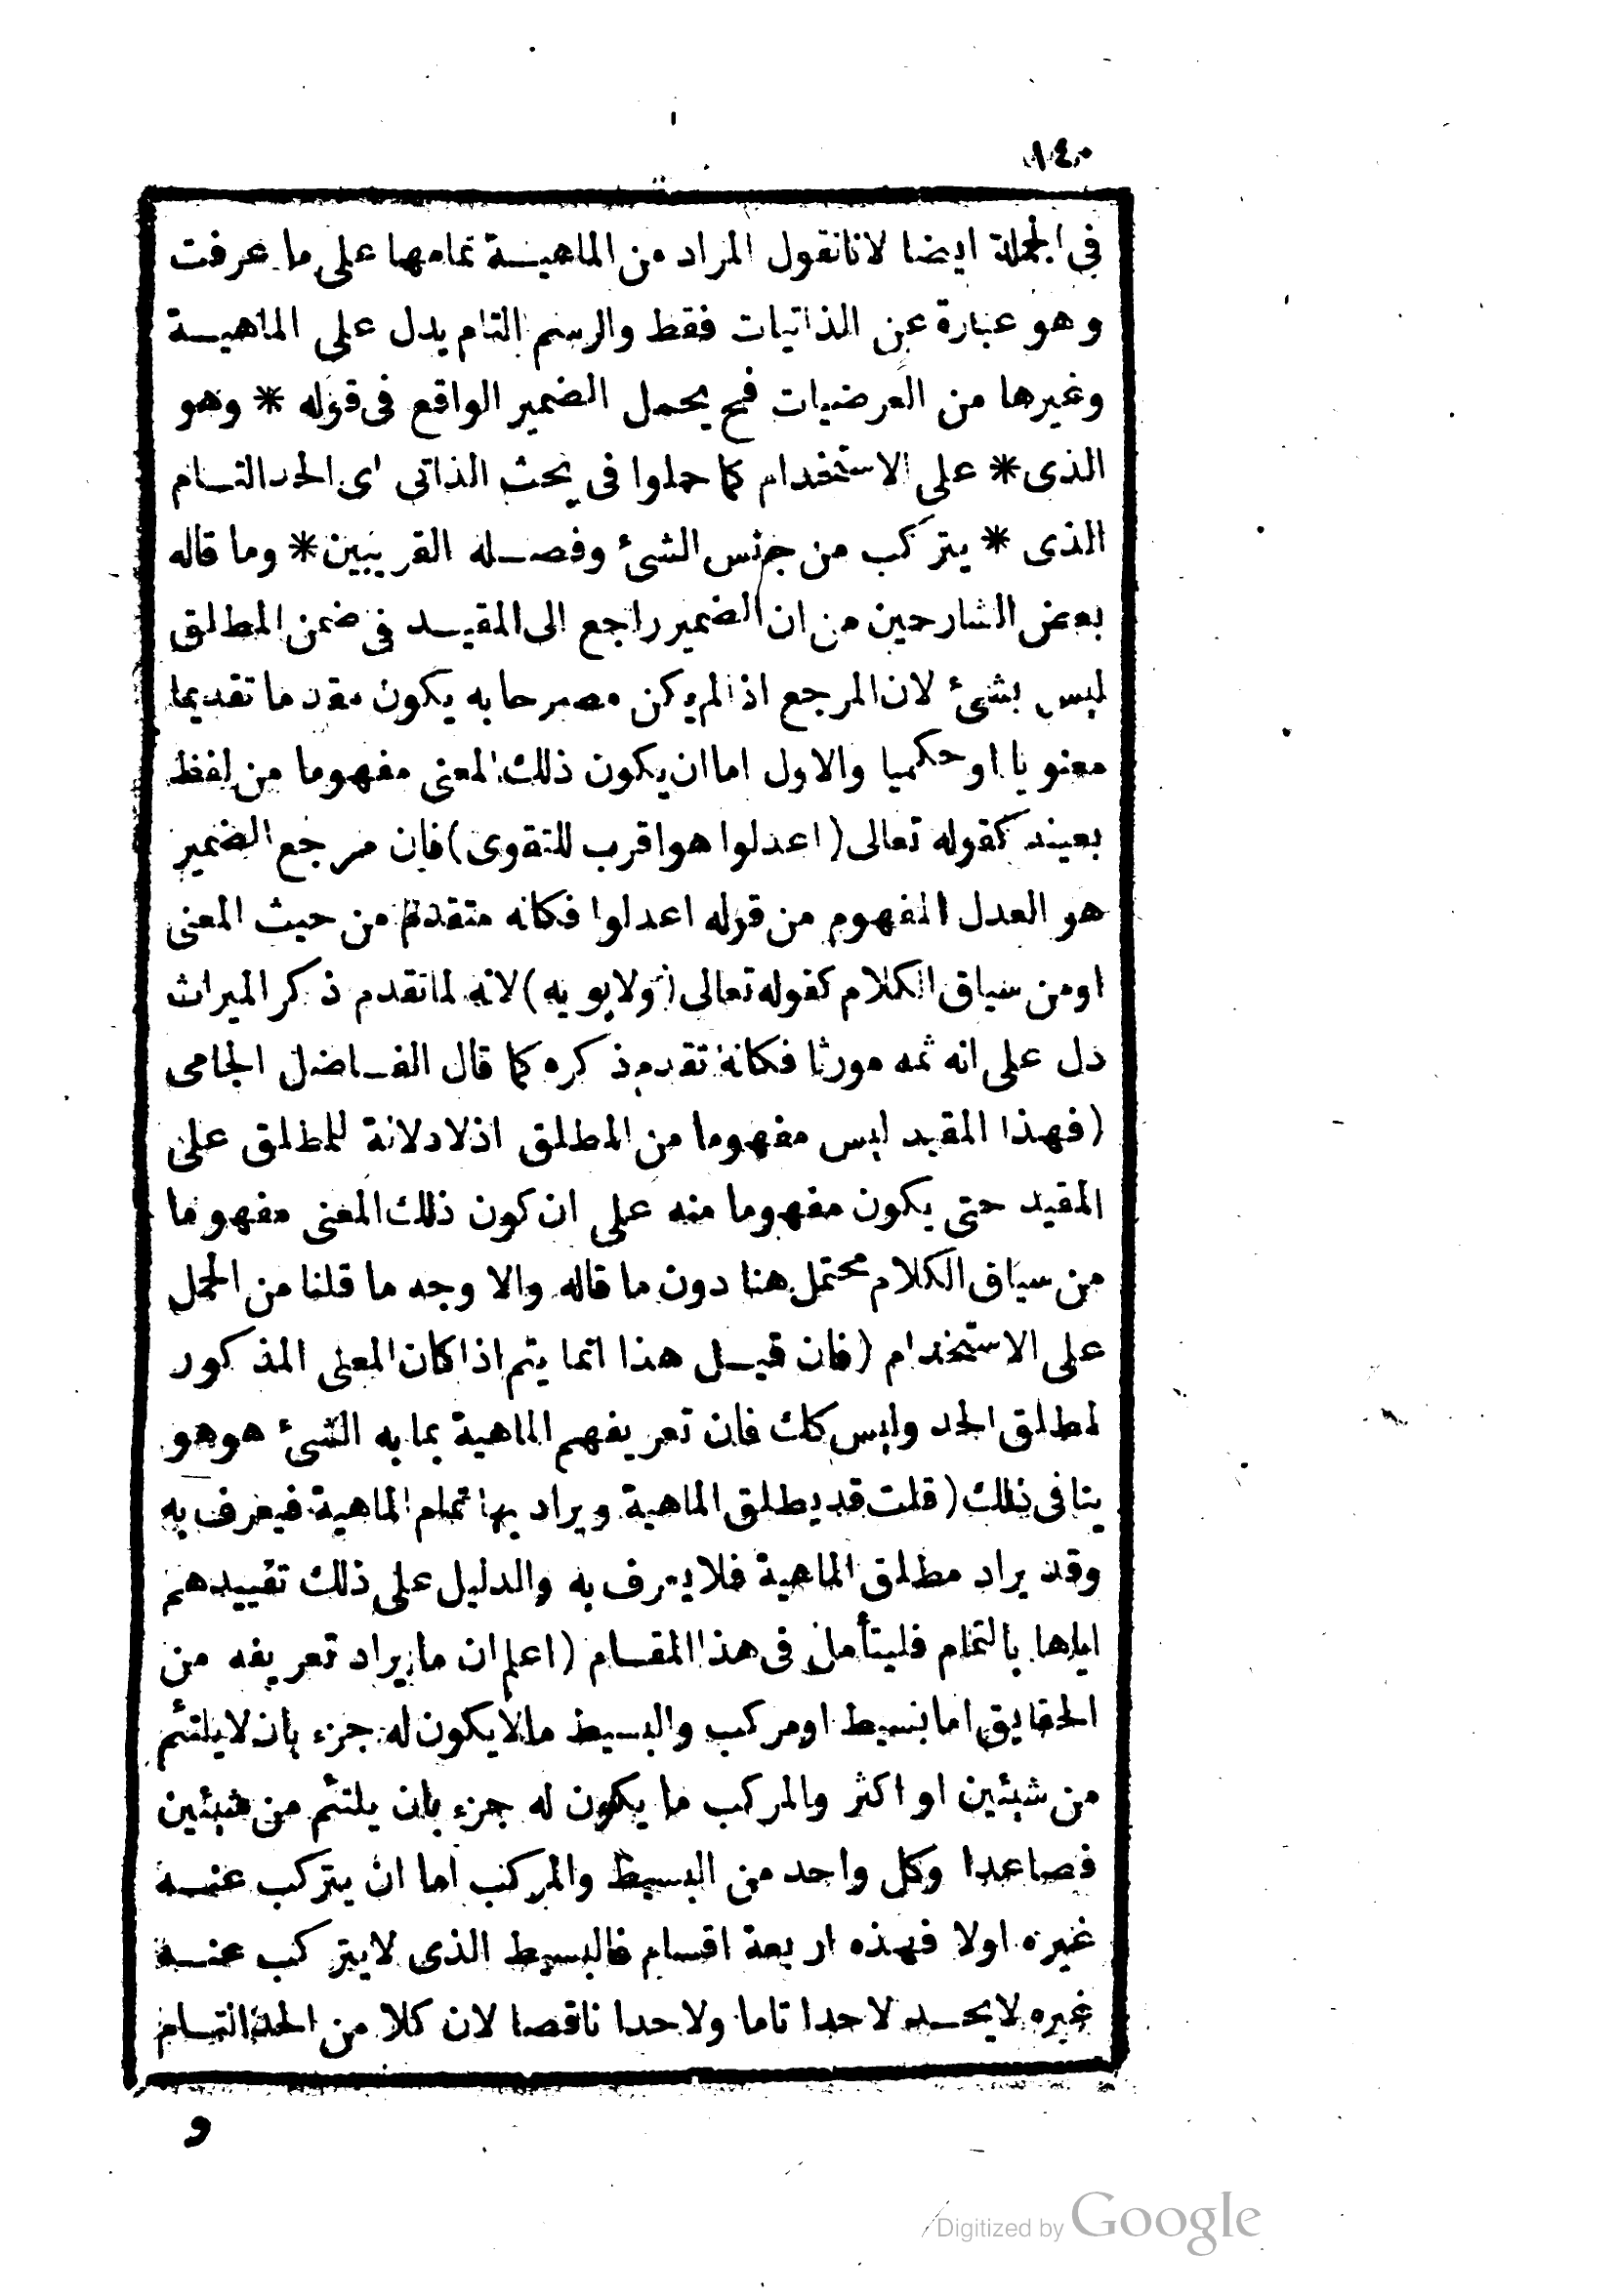 ١٤٠
فى الجملة ايضا لانا نقول المراد من الماهيـة تمامها على ما عرفت
وهو عبارة عن الذاتيات فقط والرسم التام يدل على الماهيـة
وغيرها من العرضيات فح يحمل الضمير الواقع فى قوله * وهو
الذى * على الاستخدام كما حملوا فى بحث الذاتى اى الحد التـام
الذى * يتركب من جنس الشئ وفصـله القريبين * وما قاله
بعض الشارحين من ان الضمير راجع الى المقيـد فى ضمن المطلق
ليس بشئ لان المرجع اذا لم يكن مصرحا به يكون مقدما تقديما
معنويا او حكميا والاول اما ان يكون ذلك المعنى مفهوما من لفظ
بعينه كقوله تعالى (اعدلوا هو اقرب للتقوى) فان مرجع الضمير
هو العدل المفهوم من قوله اعدلوا فكانه متقدم من حيث المعنى
او من سياق الكلام كقوله تعالى (ولابويه) لانه لما تقدم ذكر الميراث
دل على انه ثمه مورثا فكانه تقدم ذكره كما قال الفـاضل الجامى
(فهذا المقيد ليس مفهوما من المطلق اذ لا دلالة للمطلق على
المقيد حتى يكون مفهوما منه على ان كون ذلك المعنى مفهوما
من سياق الكلام محتمل هنا دون ما قاله والاوجه ما قلنا من الحمل
على الاستخدام (فان قيـل هذا انما يتم اذا كان المعنى المذكور
لمطلق الحد وليس كك فان تعريفهم الماهية بما به الشئ هو هو
ينافى ذلك (قلت قد يطلق الماهية ويراد بها تمام الماهية فيعرف به
وقد يراد مطلق الماهية فلا يعرف به والدليل على ذلك تقييدهم
اياها بالتمام فليتأمل فى هذا المقـام (اعلم ان ما يراد تعريفه من
الحقايق اما بسيط او مركب والبسيط ما لا يكون له جزء بان لا يلتئم
من شيئين او اكثر والمركب ما يكون له جزء بان يلتئم من شيئين
فصاعدا وكل واحد من البسيط والمركب اما ان يتركب عنـه
غيره اولا فهذه اربعة اقسام فالبسيط الذى لا يتركب عنـه
غيره لا يحـد لا حدا تاما ولا حدا ناقصا لان كلا من الحد التـام
و
Digitized by Google